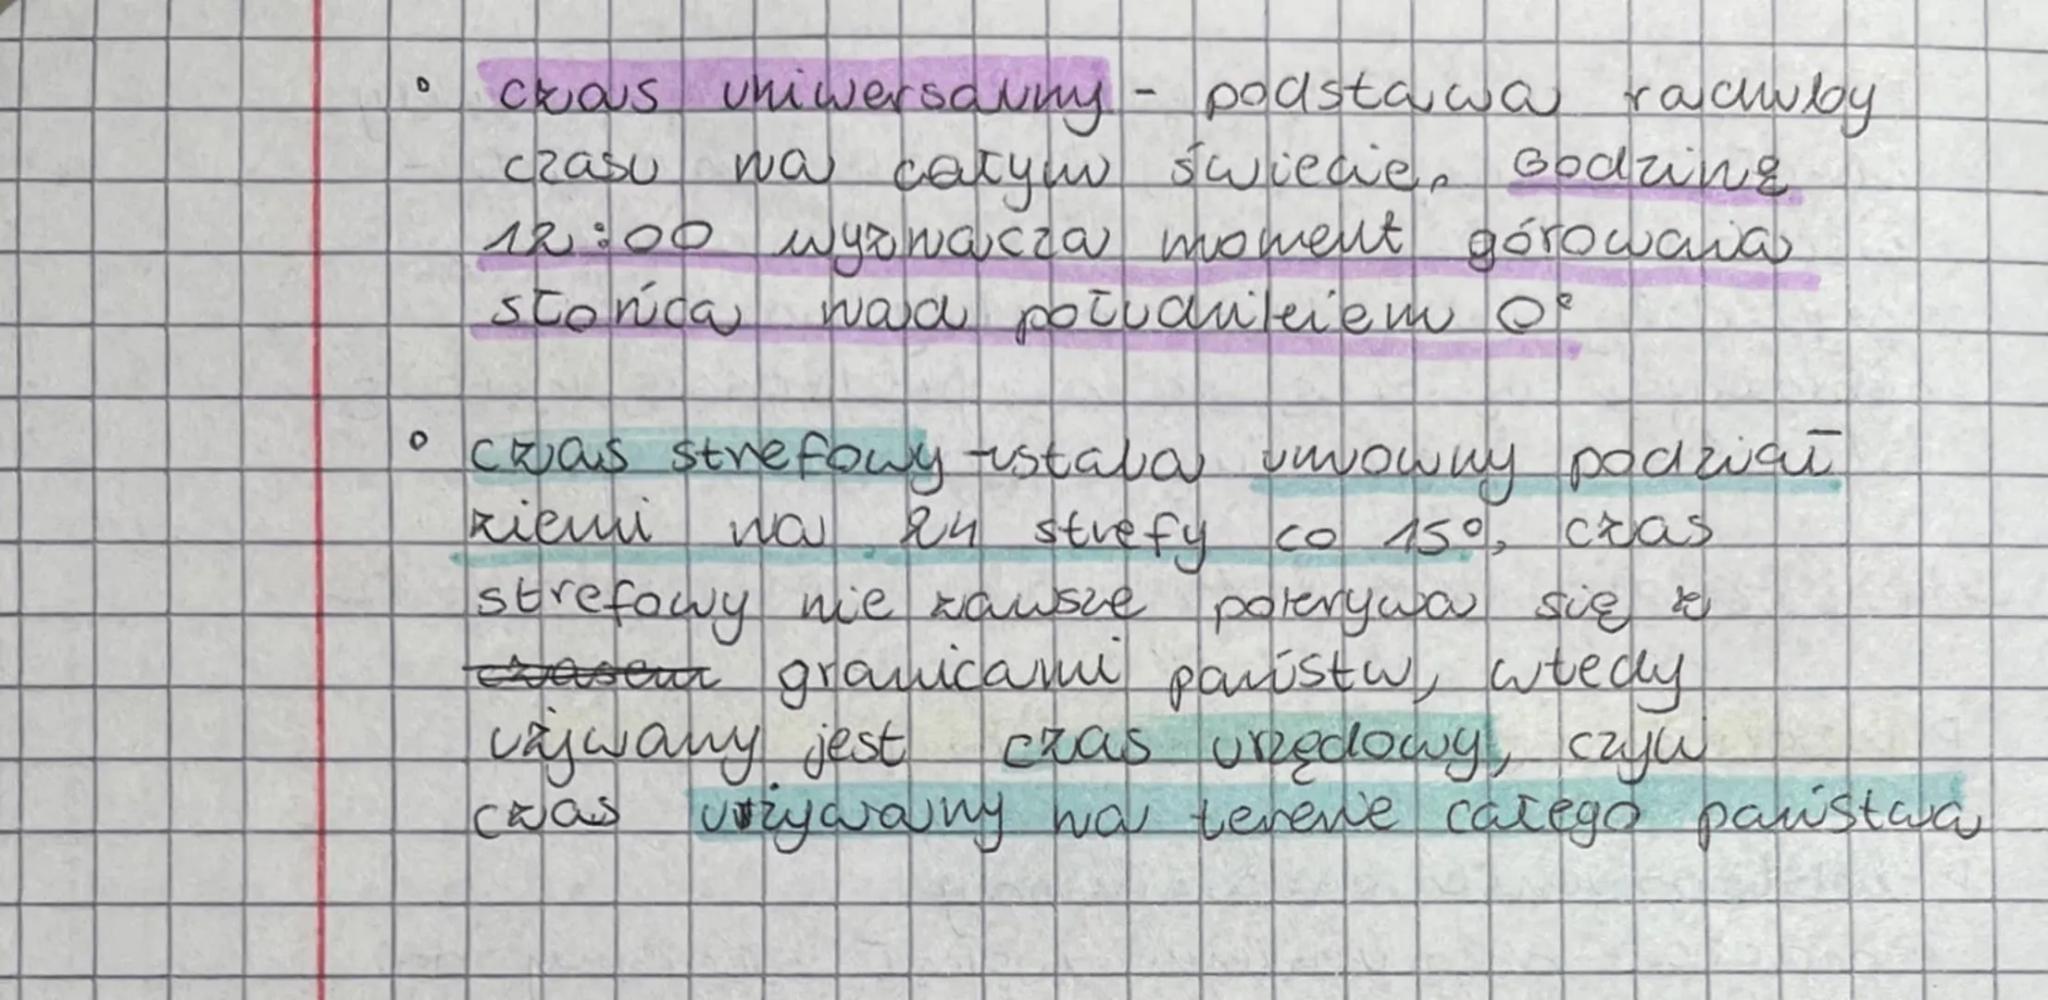 • czas uniwersalny - podstawa rachuby
czasu na całym świecie. Godzinę
12:00 wyznacza moment górowania
słońca nad południkiem 0°
• czas strefowy - ustala umowny podział
ziemi na 24 strefy co 15°, czas
strefowy nie zawsze pokrywa się z
czasem granicami państw, wtedy
używany jest czas urzędowy, czyli
czas używany na terenie całego państwa